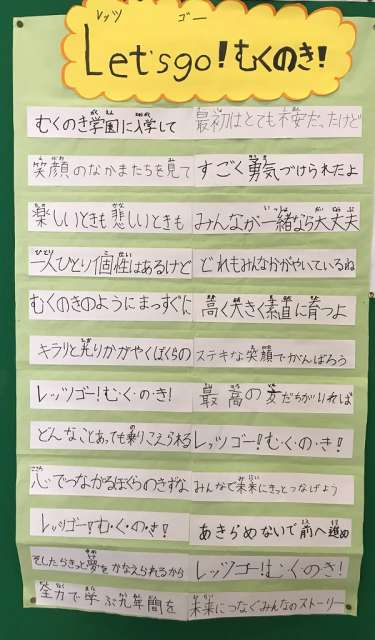 レッツ ゴー
Let's go! むくのき!
むくのき学園に入学して 最初はとても不安だったけど
笑顔のなかまたちを見て すごく勇気づけられたよ
楽しいときも悲しいときも みんなが一緒なら大丈夫
一人ひとり個性はあるけど どれもみんなかがやいているね
むくのきのようにまっすぐに 高く大きく素直に育つよ
キラリと光りかがやくぼくらの ステキな笑顔でがんばろう
レッツゴー!む・く・の・き! 最高の友だちがいれば
どんなことあっても乗りこえられる レッツゴー!む・く・の・き!
心でつながるぼくらのきずな みんなで未来にきっとつなげよう
レッツゴー!む・く・の・き! あきらめないで前へ進め
そしたらきっと夢をかなえられるから レッツゴー!むくのき!
全力で学ぶ九年間を 未来につなぐみんなのストーリー